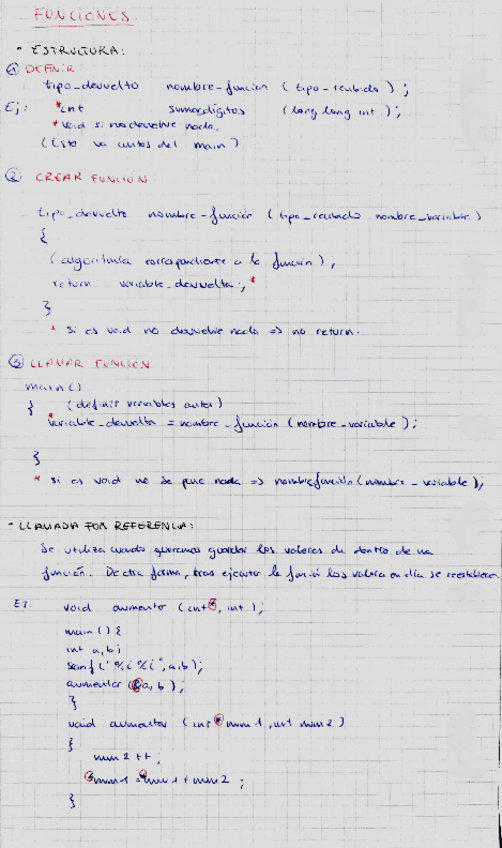 FUNCIONES.
• ESTRUCTURA:
① DEFINIR
tipo_devuelto nombre-funcion (tipo-recibido);
Ej: *int sumardigitos (long long int);
*void si no devuelve nada.
(Esto va antes del main)
② CREAR FUNCIÓN
tipo_devuelto nombre-función (tipo_recibido nombre_variable)
{
(algoritmia correspondiente a la función),
return variable_devuelta; *
}
* si es void no devuelve nada => no return.
③ LLAMAR FUNCIÓN
main()
{ (definir variables antes)
*variable_devuelta = nombre_función (nombre_variable);
}
* si es void no se pone nada => nombrefunción (nombre_variable);
• LLAMADA POR REFERENCIA:
Se utiliza cuando queremos guardar los valores de dentro de una
función. De otra forma, tras ejecutar la función los valores en ella se reestablecen.
EJ: void aumentar (int*, int);
main () {
int a,b;
scanf("%i %i",a,b);
aumentar (&a, b);
}
void aumentar (int *num1, int num2)
}
num2++;
*num1 = *num1 + num2 ;
}